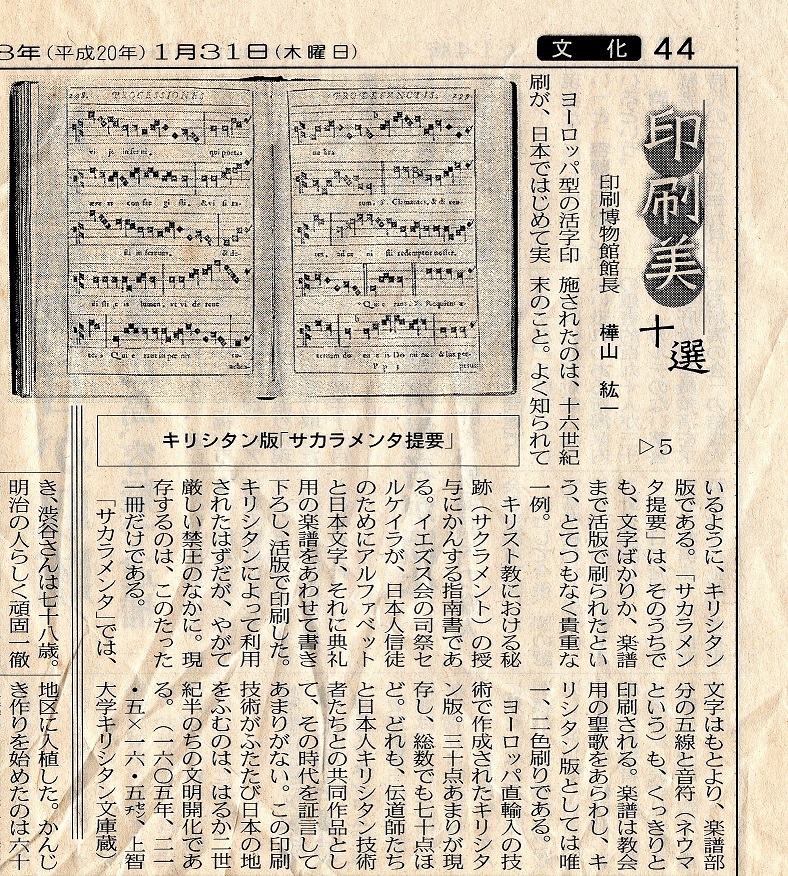 8年(平成20年)1月31日(木曜日)
文化 44
印刷美
十選
▷5
印刷博物館館長 樺山 紘一
ヨーロッパ型の活字印
刷が、日本ではじめて実
施されたのは、十六世紀
末のこと。よく知られて
いるように、キリシタン
版である。「サカラメン
タ提要」は、そのうちで
も、文字ばかりか、楽譜
まで活版で刷られたとい
う、とてつもなく貴重な
一例。
キリスト教における秘
跡（サクラメント）の授
与にかんする指南書であ
る。イエズス会の司祭セ
ルケイラが、日本人信徒
のためにアルファベット
と日本文字、それに典礼
用の楽譜をあわせて書き
下ろし、活版で印刷した。
キリシタンによって利用
されたはずだが、やがて
厳しい禁圧のなかに。現
存するのは、このたった
一冊だけである。
「サカラメンタ」では、
文字はもとより、楽譜部
分の五線と音符（ネウマ
という）も、くっきりと
印刷される。楽譜は教会
用の聖歌をあらわし、キ
リシタン版としては唯
一、二色刷りである。
ヨーロッパ直輸入の技
術で作成されたキリシタ
ン版。三十点あまりが現
存し、総数でも七十点ほ
ど。どれも、伝道師たち
と日本人キリシタン技術
者たちとの共同作品とし
て、その時代を証言して
あまりがない。この印刷
技術がふたたび日本の地
をふむのは、はるか二世
紀半のちの文明開化であ
る。（一六〇五年、二一
・五×一六・五㌢、上智
大学キリシタン文庫蔵）
キリシタン版「サカラメンタ提要」
298. PROCESSIONES
PRO DEFUNCTIS. 299.
P p 3
き、渋谷さんは七十八歳。
明治の人らしく頑固一徹
地区に入植した。かんじ
き作りを始めたのは六十